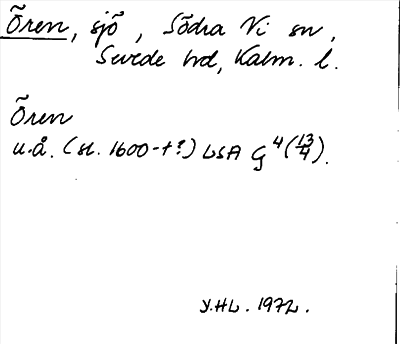 Ören, sjö, Södra Vi sn,
Sevede hd, Kalm. l.
Ören
u.å. (sl. 1600-t?) LSA G 4 (13/4).
Y.HL. 1972.